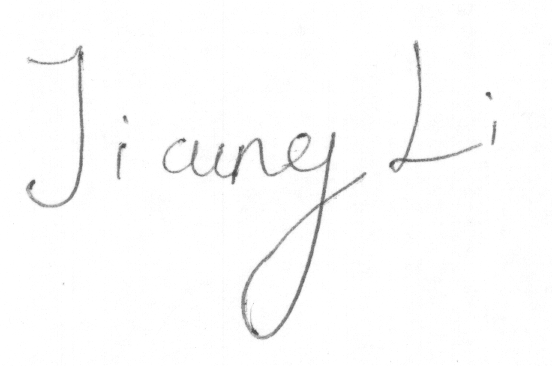 Jiang Li